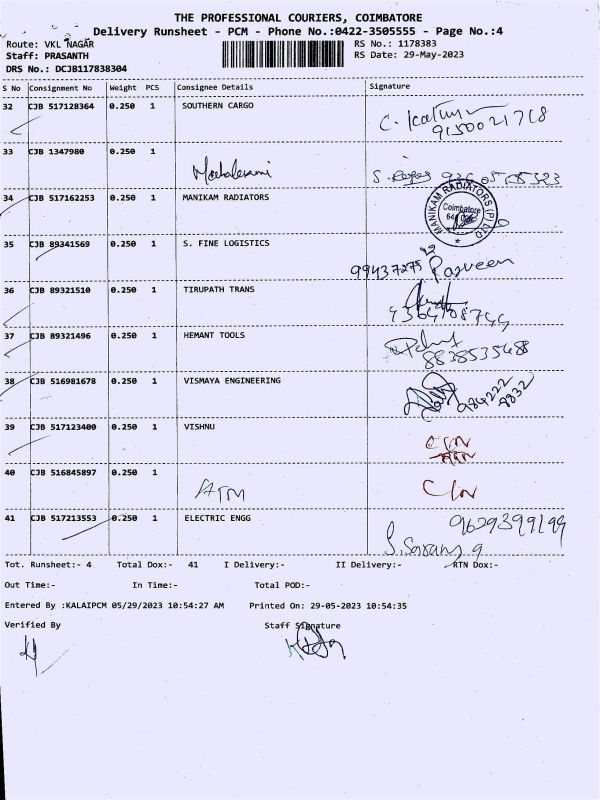 THE PROFESSIONAL COURIERS, COIMBATORE
Delivery Runsheet - PCM - Phone No.:0422-3505555 - Page No.:4
Route: VKL NAGAR RS No.: 1178383
Staff: PRASANTH RS Date: 29-May-2023
DRS No.: DCJB117838304
S No Consignment No Weight PCS Consignee Details Signature
32 CJB 517128364 0.250 1 SOUTHERN CARGO
9150021718
33 CJB 1347980 0.250 1
34 CJB 517162253 0.250 1 MANIKAM RADIATORS
MANIKAM RADIATORS (P) LTD
Coimbatore
35 CJB 89341569 0.250 1 S. FINE LOGISTICS
Parveen
36 CJB 89321510 0.250 1 TIRUPATH TRANS
37 CJB 89321496 0.250 1 HEMANT TOOLS
8838535488
38 CJB 516981678 0.250 1 VISMAYA ENGINEERING
39 CJB 517123400 0.250 1 VISHNU
40 CJB 516845897 0.250 1
ATM
41 CJB 517213553 0.250 1 ELECTRIC ENGG 9629399199
Tot. Runsheet:- 4 Total Dox:- 41 I Delivery:- II Delivery:- RTN Dox:-
Out Time:- In Time:- Total POD:-
Entered By :KALAIPCM 05/29/2023 10:54:27 AM Printed On: 29-05-2023 10:54:35
Verified By Staff Signature